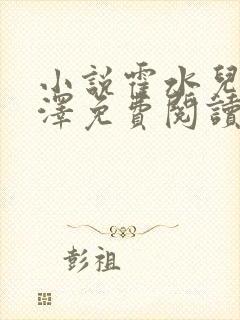 小說霍水兒
澤免費閱讀
彭祖